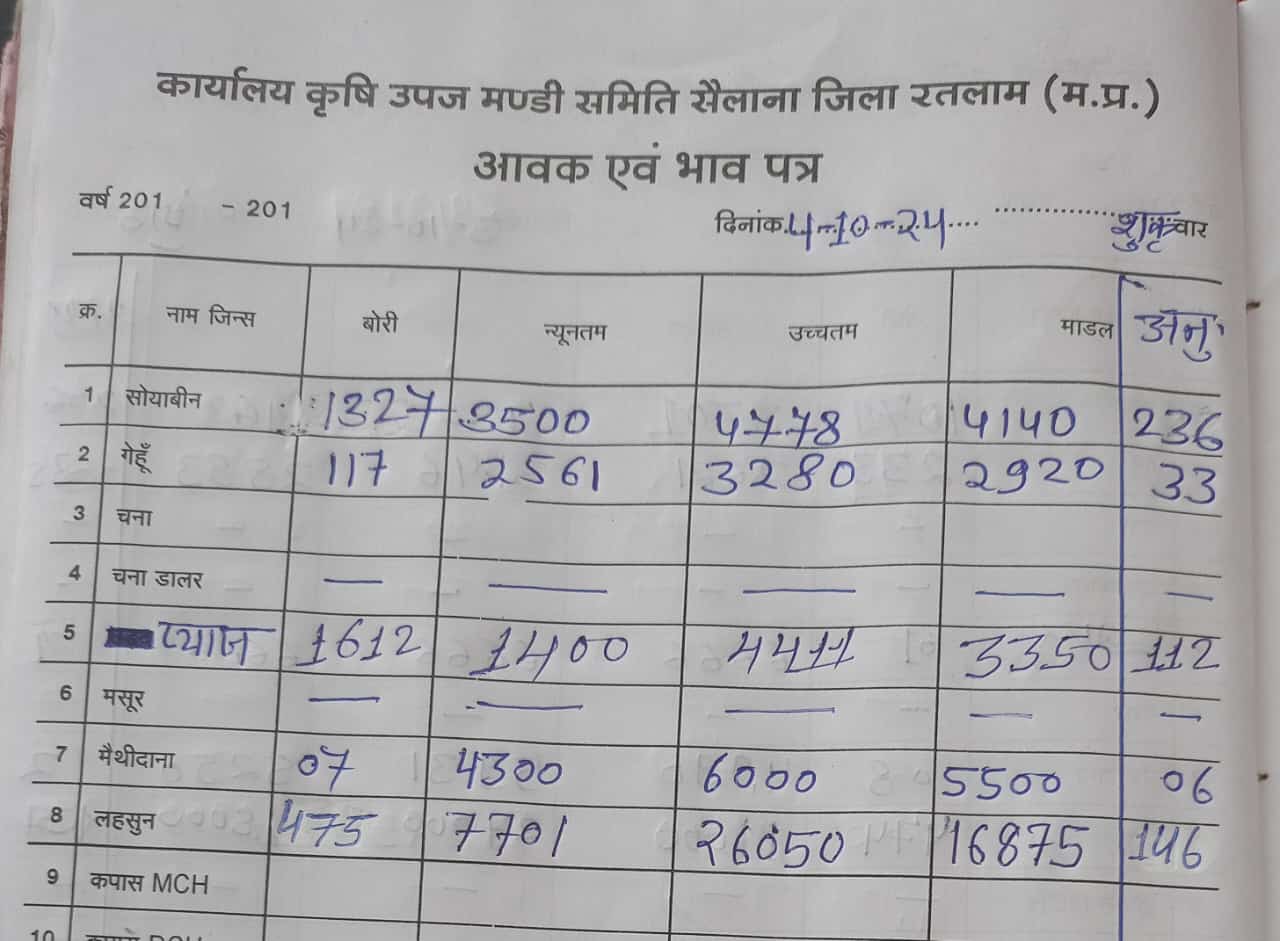 कार्यालय कृषि उपज मण्डी समिति सैलाना जिला रतलाम (म.प्र.)
आवक एवं भाव पत्र
वर्ष 201 - 201 दिनांक 4-10-24 शुक्रवार
क्र. नाम जिन्स बोरी न्यूनतम उच्चतम माडल अनु
1 सोयाबीन 1327 3500 4778 4140 236
2 गेहूँ 117 2561 3280 2920 33
3 चना
4 चना डालर — — — — —
5 प्याज 1612 1400 4411 3350 112
6 मसूर — — — — —
7 मैथीदाना 07 4300 6000 5500 06
8 लहसुन 475 7701 26050 16875 146
9 कपास MCH
10